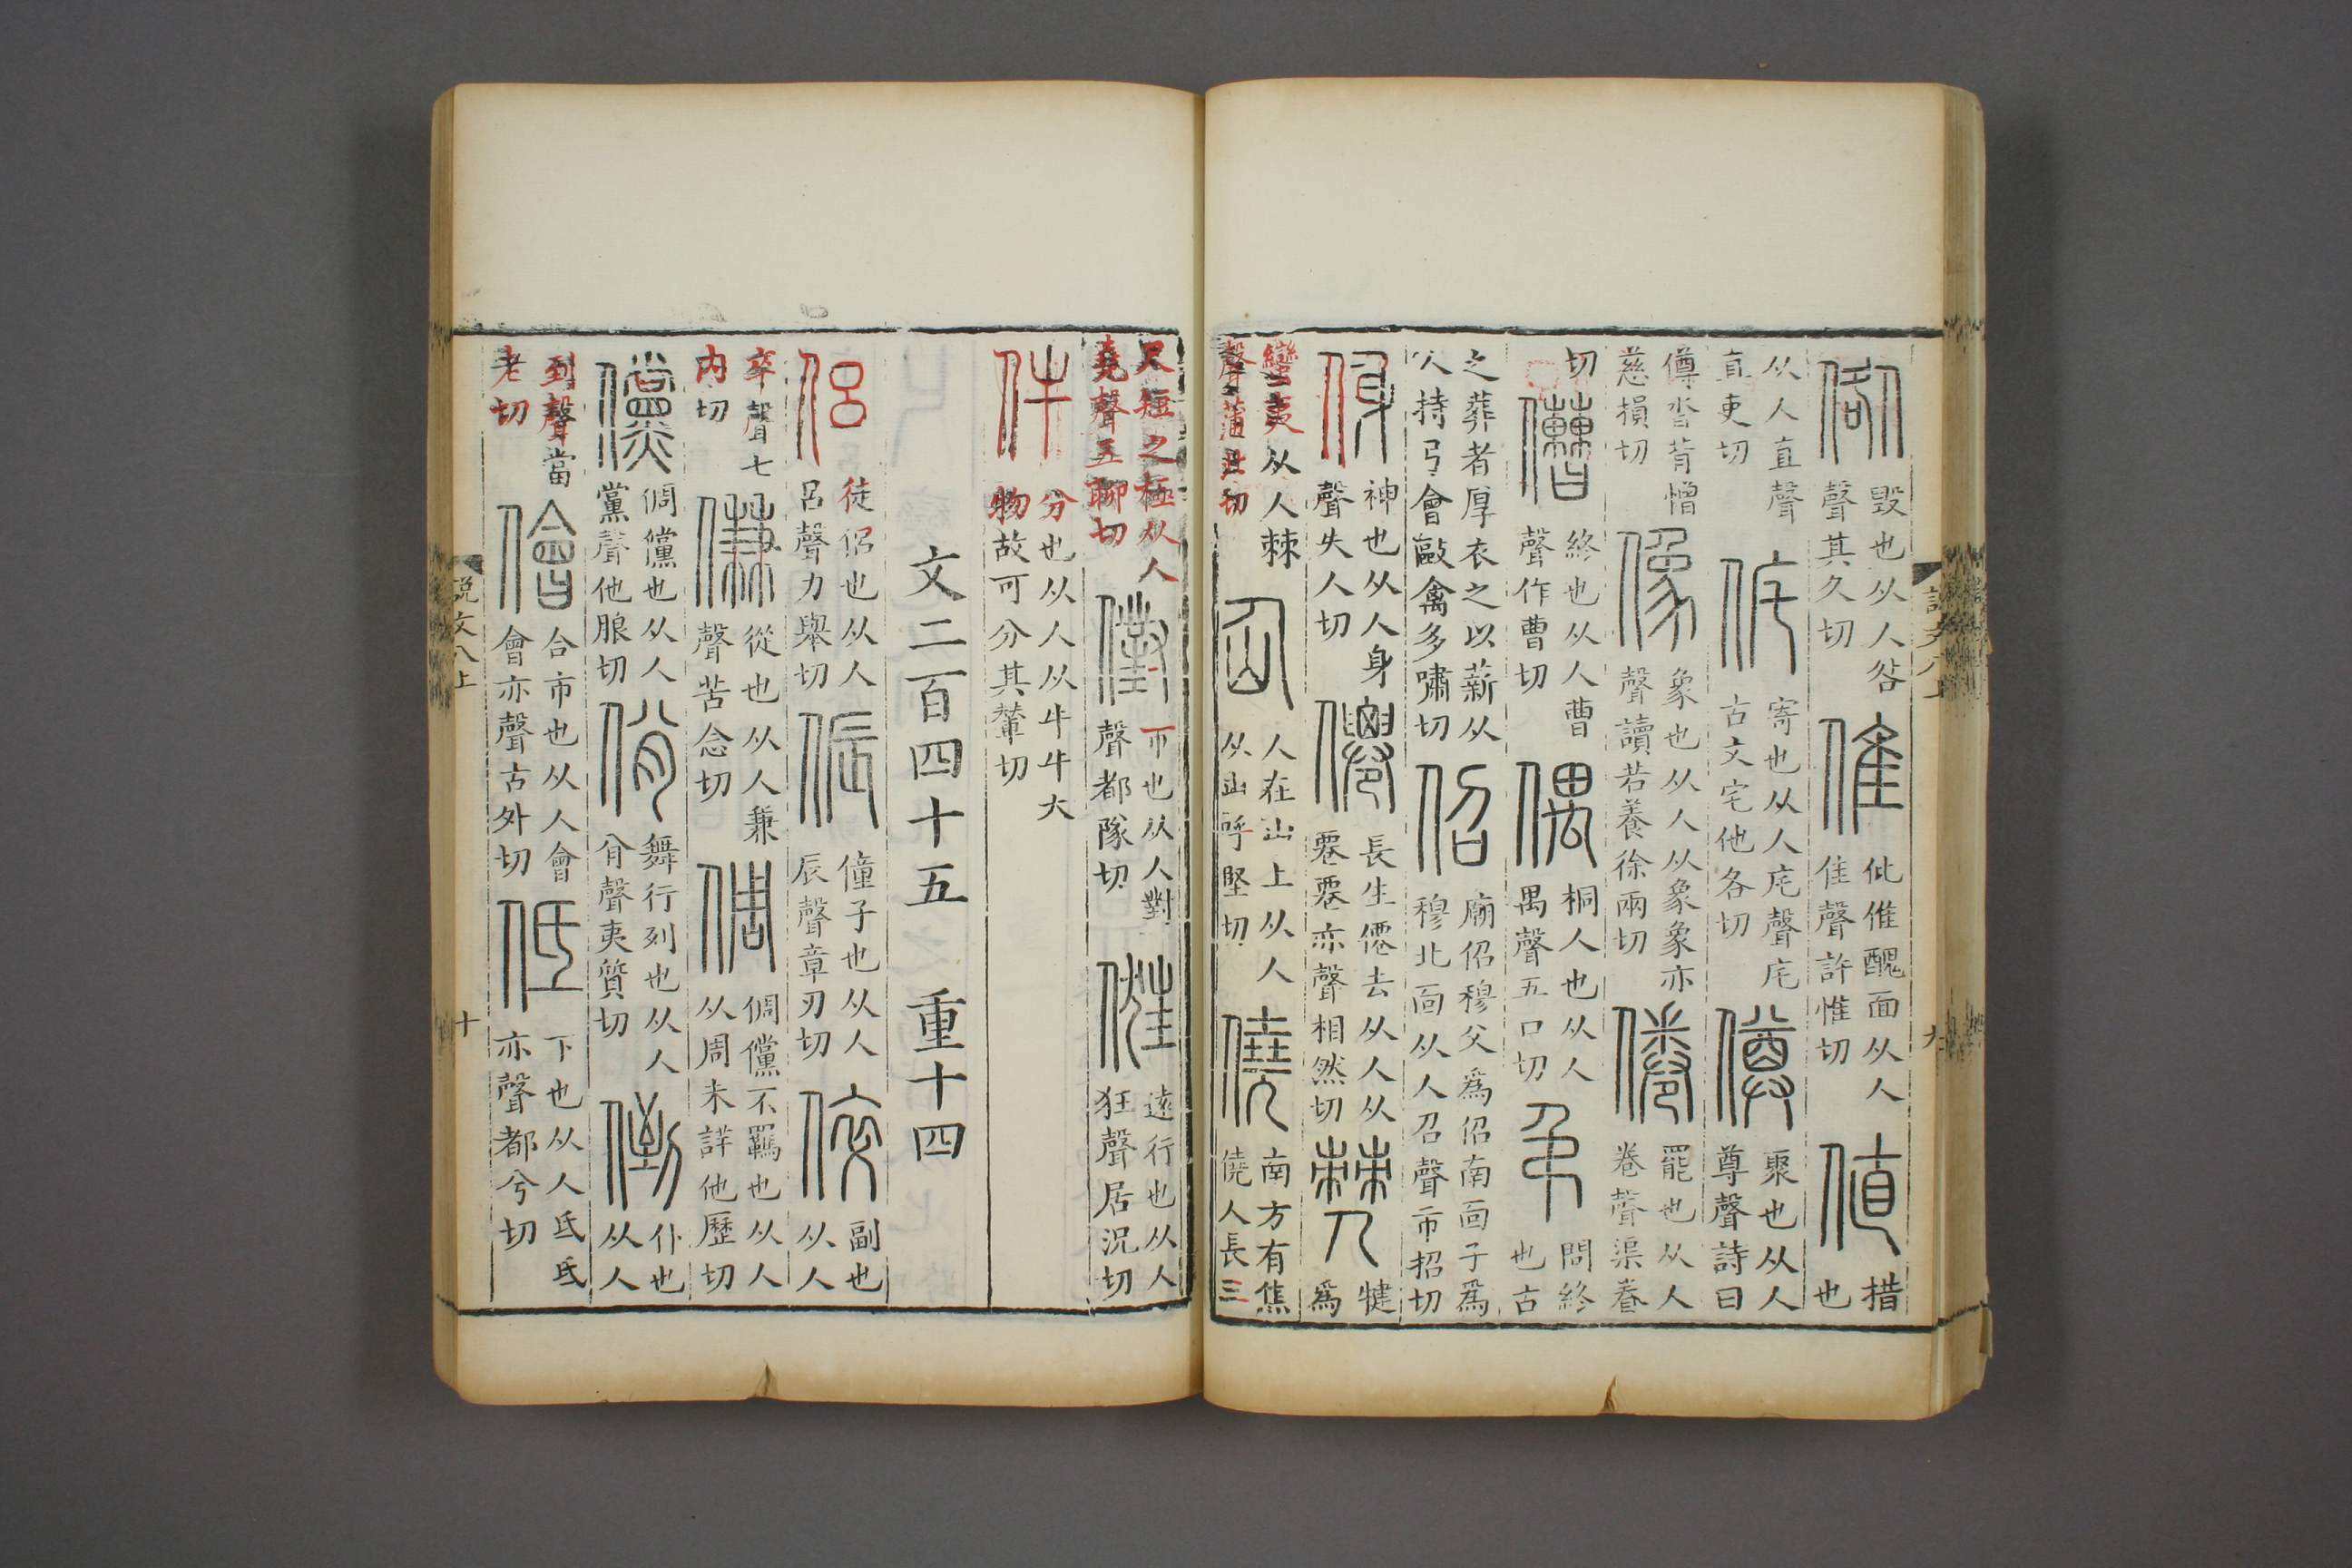 説文八上 九
㑜毀也从人咎聲其久切倠仳倠醜面从人隹聲許惟切値措也
从人直聲直吏切侂寄也从人庑聲庑古文宅他各切僔聚也从人尊聲詩曰
僔沓背憎慈損切像象也从人从象象亦聲讀若養徐兩切倦罷也从人卷聲渠眷
切傮終也从人曹聲作曹切偶桐人也从人禺聲五口切弔問終也古
之葬者厚衣之以薪从人持弓會敺禽多嘯切佋廟佋穆父爲佋南面子爲穆北面从人召聲市招切
㑗神也从人身聲失人切僊長生僊去从人从䙴䙴亦聲相然切僰犍爲
蠻夷从人棘聲蒲北切仚人在山上从人从山呼堅切僥南方有焦僥人長三
尺短之極从人堯聲五聊切㒔帀也从人對聲都隊切俇遠行也从人狂聲居況切
件分也从人从牛牛大物故可分其輦切
文二百四十五 重十四
侶徒侶也从人呂聲力舉切侲僮子也从人辰聲章刃切倅副也从人
卒聲七内切傔從也从人兼聲苦念切倜倜儻不羈也从人从周未詳他歷切
儻倜儻也从人黨聲他朖切佾舞行列也从人䏌聲夷質切倒仆也从人
到聲當老切儈合市也从人會會亦聲古外切低下也从人氐氐亦聲都兮切
説文八上 十